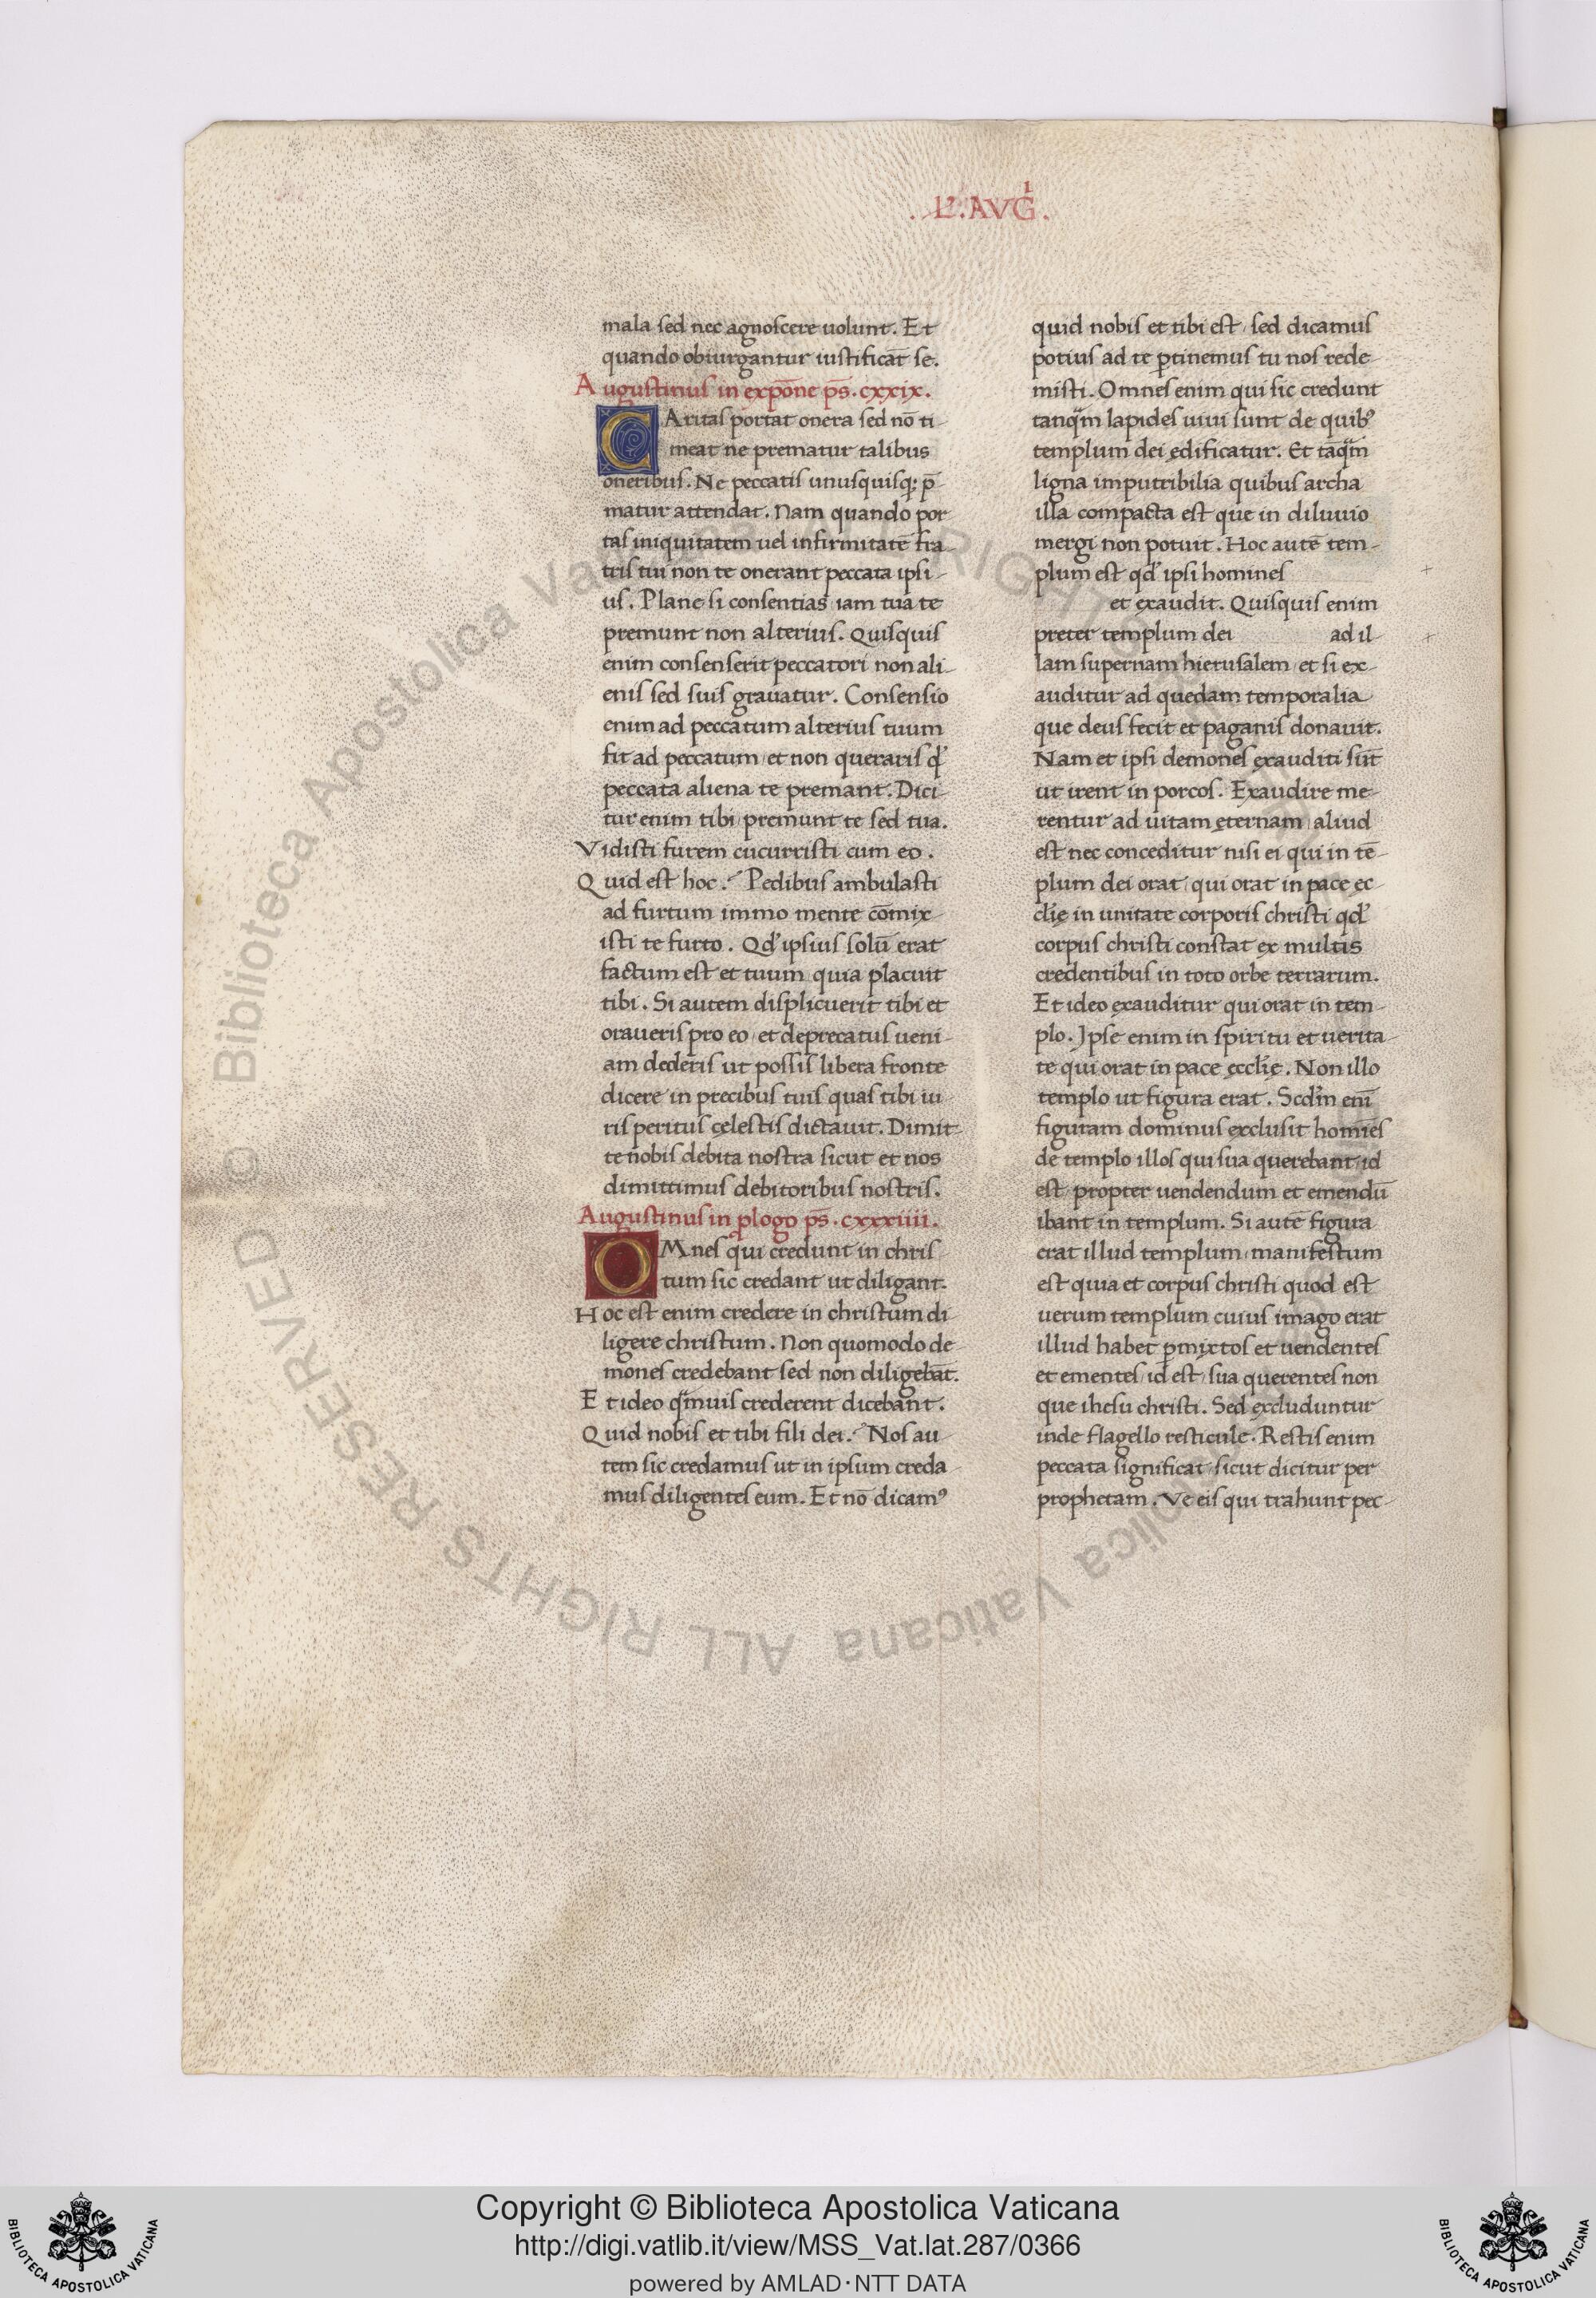 . Lꝰ. AVG̍ .
mala sed nec agnoscere uolunt. Et
quando obiurgantur iustificāt se.
Augustinus in expōne ps̄. cxxix.
CAritas portat onera sed nō ti-
meat ne prematur talibus
oneribus. Ne peccatis unusquisq; p̄-
matur attendat. Nam quando por
tas iniquitatem uel infirmitatē fra-
tris tui non te onerant peccata ipsi-
us. Plane si consentias iam tua te
premunt non alterius. Quisquis
enim consenserit peccatori non ali-
enis sed suis grauatur. Consensio
enim ad peccatum alterius tuum
fit ad peccatum et non queraris qđ
peccata aliena te premant. Dici-
tur enim tibi premunt te sed tua.
Vidisti furem cucurristi cum eo.
Quid est hoc? Pedibus ambulasti
ad furtum immo mente cōmix-
isti te furto. Qđ ipsius solū erat
factum est et tuum quia placuit
tibi. Si autem displicuerit tibi et
oraueris pro eo et deprecatus ueni-
am dederis ut possis libera fronte
dicere in precibus tuis quas tibi iu-
ris peritus cęlestis dictauit. Dimit-
te nobis debita nostra sicut et nos
dimittimus debitoribus nostris.
Augustinus in ꝓlogo ps̄. cxxxiiii.
OMnes qui credunt in chris-
tum sic credant ut diligant.
Hoc est enim credere in christum di
ligere christum. Non quomodo de
mones credebant sed non diligebāt.
Et ideo qͣmuis crederent dicebant.
Quid nobis et tibi fili dei? Nos au-
tem sic credamus ut in ipsum creda-
mus diligentes eum. Et nō dicamꝰ
quid nobis et tibi est, sed dicamus
potius ad te ꝑtinemus tu nos rede-
misti. Omnes enim qui sic credunt
tanqͣm lapides uiui sunt de quibꝰ
templum dei ędificatur. Et tāqͣm
ligna imputribilia quibus archa
illa compacta est que in diluuio
mergi non potuit. Hoc autē tem-
plum est qđ ipsi homines
et exaudit. Quisquis enim
preter templum dei ad il-
lam supernam hierusalem et si ex-
auditur ad quedam temporalia
que deus fecit et paganis donauit.
Nam et ipsi demones exauditi sūt
ut irent in porcos. Exaudire me-
rentur ad uitam ęternam aliud
est nec conceditur nisi ei qui in tē-
plum dei orat, qui orat in pace ec-
clīę in unitate corporis christi qđ
corpus christi constat ex multis
credentibus in toto orbe terrarum.
Et ideo exauditur qui orat in tem-
plo. Ipse enim in spiritu et uerita-
te qui orat in pace ęcclīę. Non illo
templo ut figura erat. Scđm enī
figuram dominus exclusit homīes
de templo illos qui sua querebant, id
est, propter uendendum et emendū
ibant in templum. Si autē figura
erat illud templum, manifestum
est quia et corpus christi quod est
uerum templum cuius imago erat
illud habet ꝑmixtos et uendentes
et ementes, id est, sua querentes non
que ihesu christi. Sed excluduntur
inde flagello resticule. Restis enim
peccata significat, sicut dicitur per
prophetam. Ve eis qui trahunt pec-
© Biblioteca Apostolica Vaticana ALL RIGHTS RESERVED
Copyright © Biblioteca Apostolica Vaticana
http://digi.vatlib.it/view/MSS_Vat.lat.287/0366
powered by AMLAD·NTT DATA
BIBLIOTECA APOSTOLICA VATICANA
BIBLIOTECA APOSTOLICA VATICANA